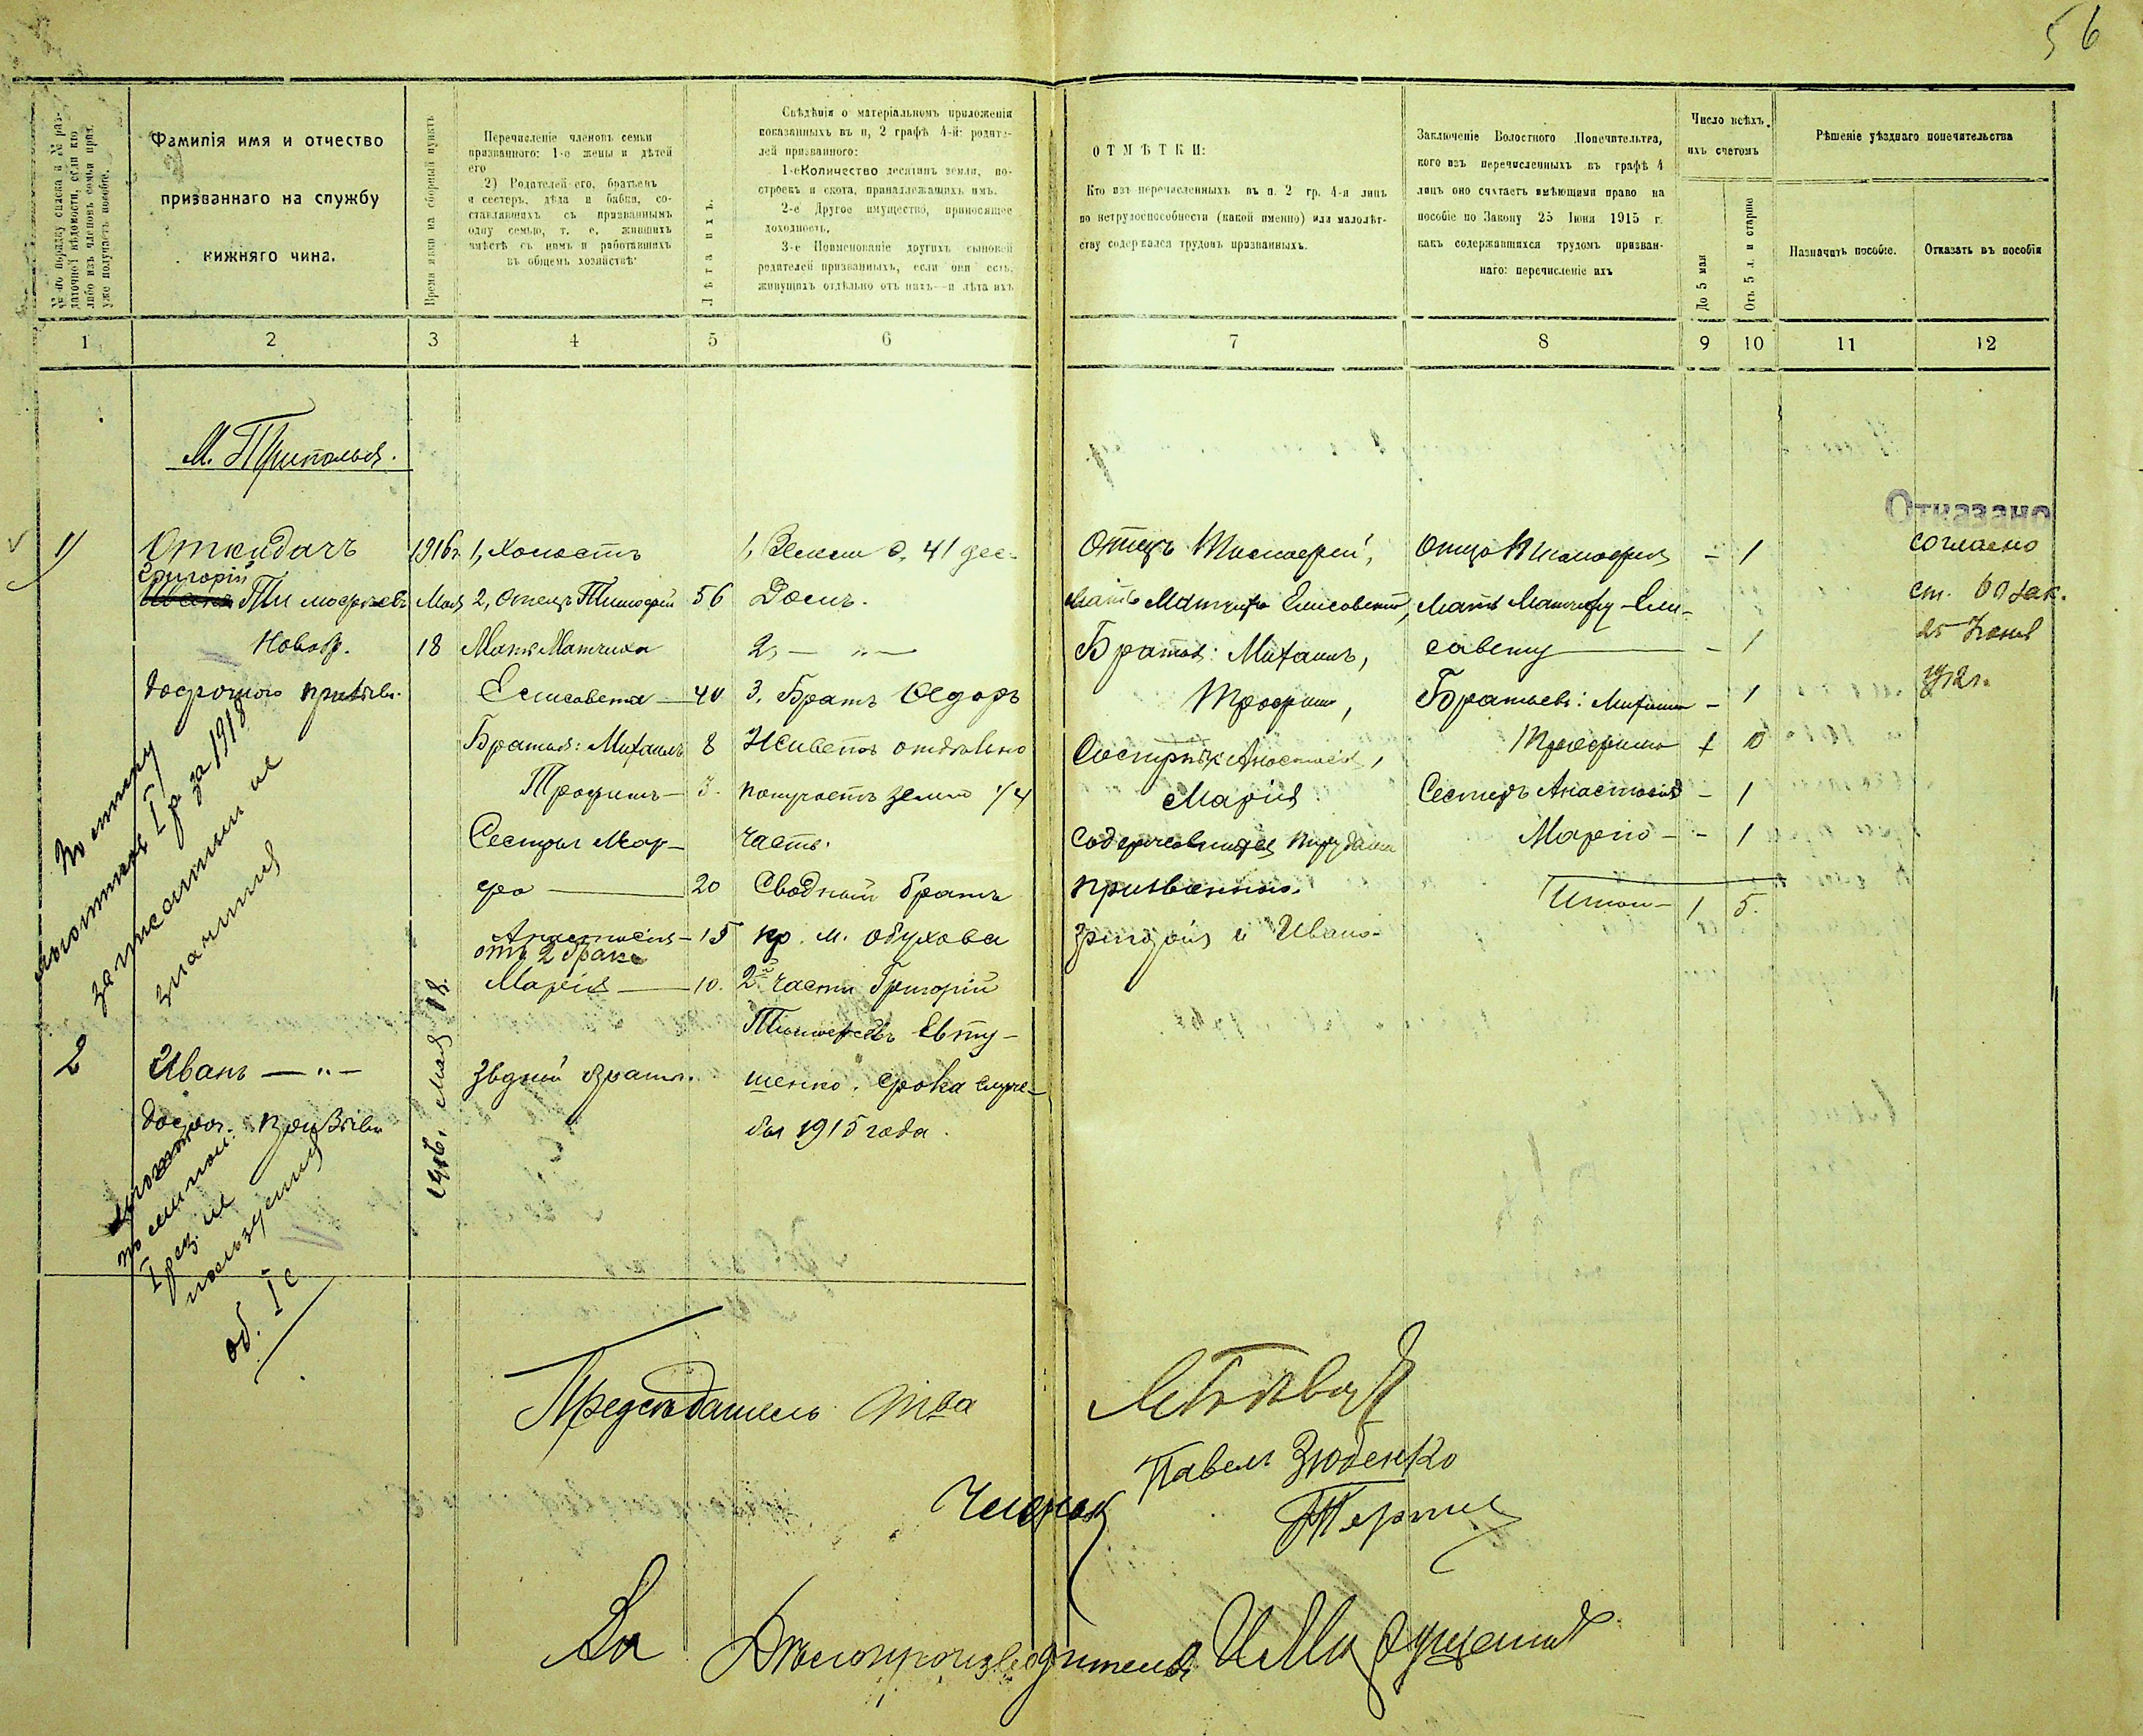 56
№ по порядку списка и № раз-
даточной вѣдомости, если кто
либо изъ членовъ семьи приз.
уже получаетъ пособіе.
Фамилія имя и отчество
призваннаго на службу
нижняго чина.
Время явки на сборный пунктъ
Перечисленіе членовъ семьи
призваннаго: 1-е жены и дѣтей
его
2) Родителей его, братьевъ
и сестеръ, дѣда и бабки, со-
ставлявшихъ съ призваннымъ
одну семью, т. е. жившихъ
вмѣстѣ съ нимъ и работавшихъ
въ общемъ хозяйствѣ:
Лѣта ихъ.
Свѣдѣнія о матеріальномъ приложеніи
показанныхъ въ п, 2 графѣ 4-й: родите-
лей призваннаго:
1-е Количество десятинъ земли, по-
строекъ и скота, принадлежащихъ имъ.
2-е Другое имущество, приносящее
доходность.
3-е Поименованіе другихъ сыновей
родителей призванныхъ, если они есть,
живущихъ отдѣльно отъ нихъ—и лѣта ихъ
ОТМѢТКИ:
Кто изъ перечисленныхъ въ п. 2 гр. 4-я лицъ
по нетрудоспособности (какой именно) или малолѣт-
ству содержался трудомъ призванныхъ.
Заключеніе Волостного Попечительтра,
кого изъ перечисленныхъ въ графѣ 4
лицъ оно считаетъ имѣющими право на
пособіе по Закону 25 Іюня 1915 г.
какъ содержавшихся трудомъ призван-
наго: перечисленіе ихъ
Число всѣхъ
ихъ счетомъ
До 5 мая
Отъ 5 л. и старше
Рѣшеніе уѣзднаго попечительства
Назначить пособіе.
Отказать въ пособіи
1 2 3 4 5 6 7 8 9 10 11 12
М. Триполья.
1)
Откидачъ
Григорій
Иванъ Тимофеевъ
Новобр.
досрочного призыва.
1916г.
Мая
18
1, Холостъ
2, Отецъ Тимофей 56
Мать Мачиха
Елисавета — 40
Братья: Михаилъ 8
Трофимъ — 3.
Сестры Мар-
фа — 20
Анастасія — 15
отъ 2 брака
Марія — 10.
1, Земли 0,41 дес.
Домъ.
2, — „ —
3. Братъ Федоръ
Живетъ отдѣльно
получаетъ земли 1/4
часть.
Сводный братъ
пр. м. Обухова
2й части Григорій
Тимофеевъ Евту-
шенко. Срока служ-
бы 1915 года.
Отецъ Тимофей,
мать Мачиха Елисавета,
Братья: Михаилъ,
Трофимъ,
Сестры: Анастасія,
Марія
содержавшіеся трудами
призванного.
Григорія и Ивана
Отца Тимофея — 1
Мать Мачиху Ели-
савету — 1
Братьевъ: Михаила — 1
Трофима 1 0
Сестеръ Анастасія — 1
Марію — 1
Итого — 1 5.
Отказано
согласно
ст. 60 зак.
25 Іюня
1912г.
льготныхъ I р за 1918
записанными не
значится
2
Иванъ — „ —
призыва
1916. Мая 18.
родной братъ.
I раз. не
пользуется
об. I с
Предсѣдатель
Павелъ Зюбенко
За Дѣлопроизводителя